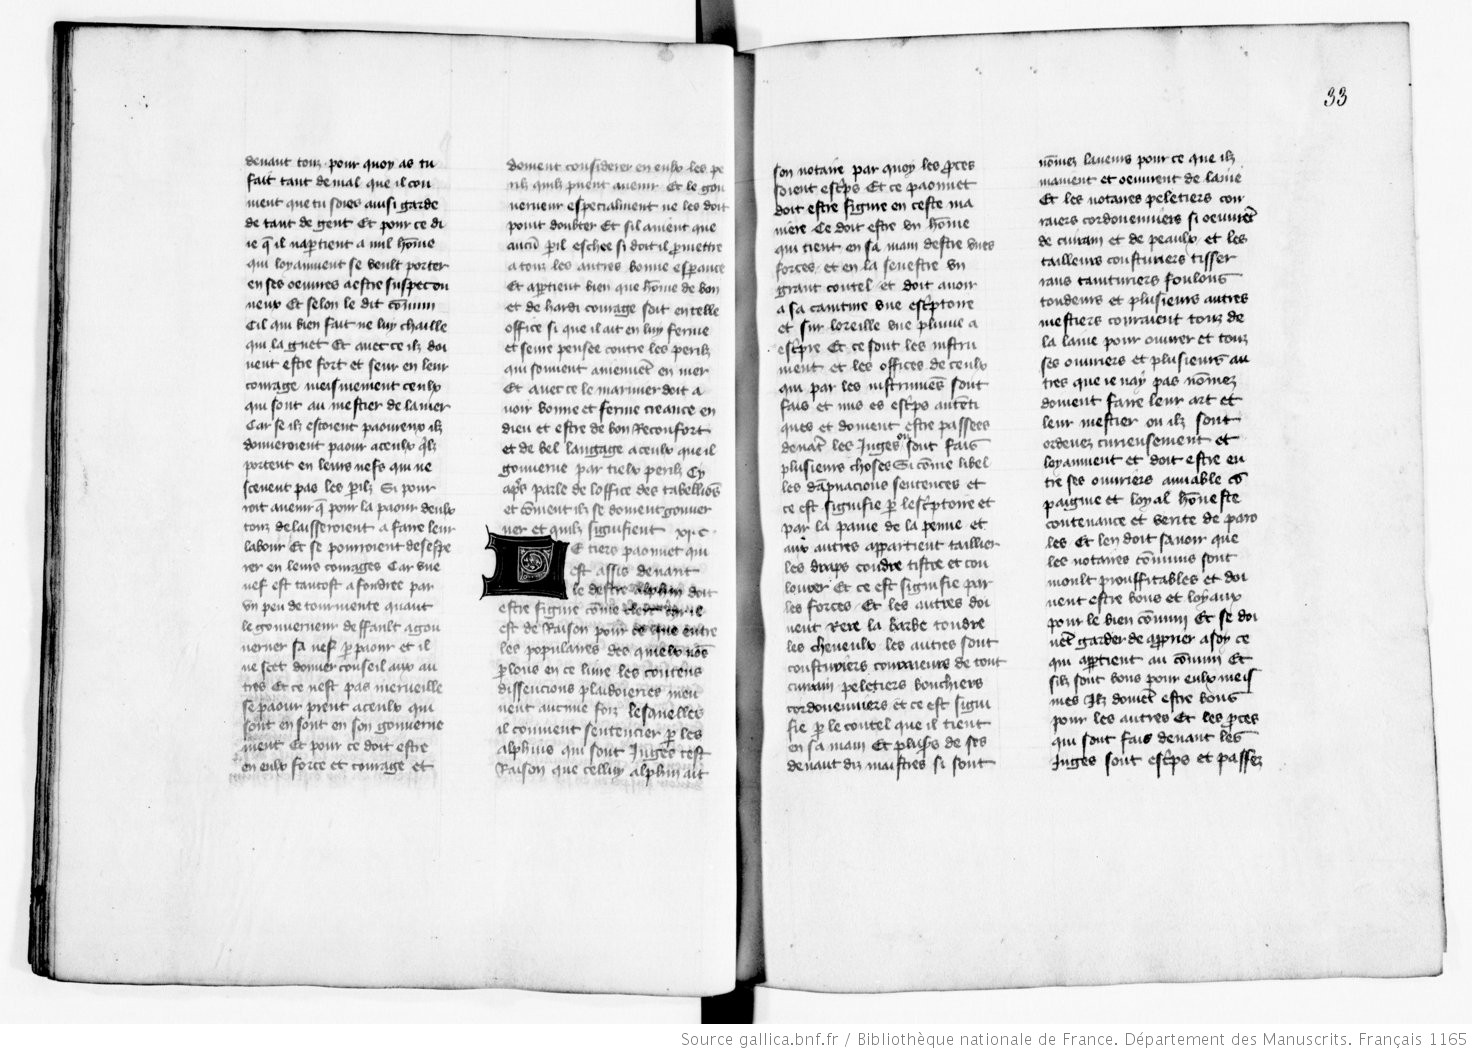 devant touz pour quoy as tu
fait tant de mal que il con
vient que tu soies ainsi garde
de tant de gent Et pour ce di
ie q̃ il nap̱tient a nul hõme
qui loyaument se veult porter
en ses oeuvres aestre suspecon
neux Et selon le dit cõmun
Cil qui bien fait ne luy chaille
qui la guet Et avec ce ilz doi
vent estre fort et seur en leur
courage meismement ceulx
qui sont au mestier de la mer
Car se ilz estoient paoureux ilz
donneroient paour a ceulx q̃lz
portent en leurs nefs qui ne
scevent pas les p̱ilz Si pour
roit avenir q̃ pour la paour deulx
touz delaisseroient a faire leur
labour Et se pourroient desespe
rer en leurs courages Car une
nef est tantost a fondree par
un peu de tourmente quant
le gouverneur deffault a gou
verner sa nef p̱ paour et il
ne scet donner conseil aux au
tres Et ce nest pas merveille
se paour prent a ceulx qui
sont en son gouverne
ment Et pour ce doit estre
en eulx force et courage et
doivent considerer en eulx les pe
rilz quilz pevent avenir Et le gou
verneur especialment ne les doit
point doubter Et sil avient que
aucũ p̱il eschee si doit il p̱mettre
a touz les autres bonne esp̱ance
Et ap̱tient bien que hõme de bon
et de hardi courage soit en telle
office si que il ait en luy ferme
et seure pensee contre les perilz
qui souvent aviennẽt en mer
Et avec ce le marinier doit a
voir bonne et ferme creance en
dieu et estre de bon Reconfort
et de bel langage a ceulx que il
gouverne par tielx perilz Cy
ap̃s parle de loffice des tabelliõs
et cõment ilz se doivent gouver
ner et quilz signifient xi.c.
LE tiers paonnet qui
est assis devant
le destre alphin doit
estre figure cõme clerc
est de Raison pour ce que entre
les populaires des quielx nõs
p̱lons en ce livre les contens
dissencions plaidoieries meu
vent aucune foiz lesquelles
il convient sentencier p̱ les
alphins qui sont Juges cest
Raison que celluy alphin ait
33
son notaire par quoy les p̱ces
soient escp̃s Et ce paonnet
doit estre figure en ceste ma
niere Ce doit estre un hõme
qui tient en sa main destre unes
forces et en la senestre un
grant coutel et doit avoir
a sa cainture une escp̃toire
et sur loreille une plume a
escp̃re Et ce sont les instru
ment et les offices de ceulx
qui par les instrumẽs sont
fais et mis es escp̃s autenti
ques et doivent estre passees
devãt les Juges ou sont fais
plusieurs choses Si cõme libel
les dãpnacions sentences et
ce est signifie p̱ lescp̃toire et
par la paine de la penne et
aux autres appartient taillier
les draps coudre tistre et cou
lourer Et ce est signifie par
les forces Et les autres doi
vent Rere la barbe tondre
les cheveulx les autres sont
cousturiers conraeurs de tout
cuirain peletiers bouchiers
cordouenniers et ce est signi
fie p̱ le coutel que il tient
en sa main Et plus̃s de ses
devant diz maistres si sont
nõmez laveurs pour ce que ilz
manient et oeuvrent de laine
Et les notaires peletiers con
raiers cordouenniers si oeuvrẽt
de cuirain et de peaulx et les
tailleurs cousturiers tisser
rans tainturiers foulons
tondeurs et plusieurs autres
mestiers conraient touz de
la laine pour ouvrer et touz
ses ouvriers et plusieurs au
tres que ie nay pas nõmez
doivent faire leur art et
leur mestier ou ilz sont
ordenez curieusement et
loyaument et doit estre en
tre ses ouvriers amiable cõ
paignie et loyal hõneste
contenance et verite de paro
les Et len doit savoir que
les notaires cõmuns sont
moult prouffitables et doi
vent estre bons et loyaux
pour le bien cõmun Et se doi
vẽt garder de app̱rier a soy ce
qui ap̱tient au cõmun Et
silz sont bons pour eulx meis
mes Ilz doivẽt estre bons
pour les autres Et les p̱ces
qui sont fais devant les
Juges sont escp̃s et passez
Source gallica.bnf.fr / Bibliothèque nationale de France. Département des Manuscrits. Français 1165